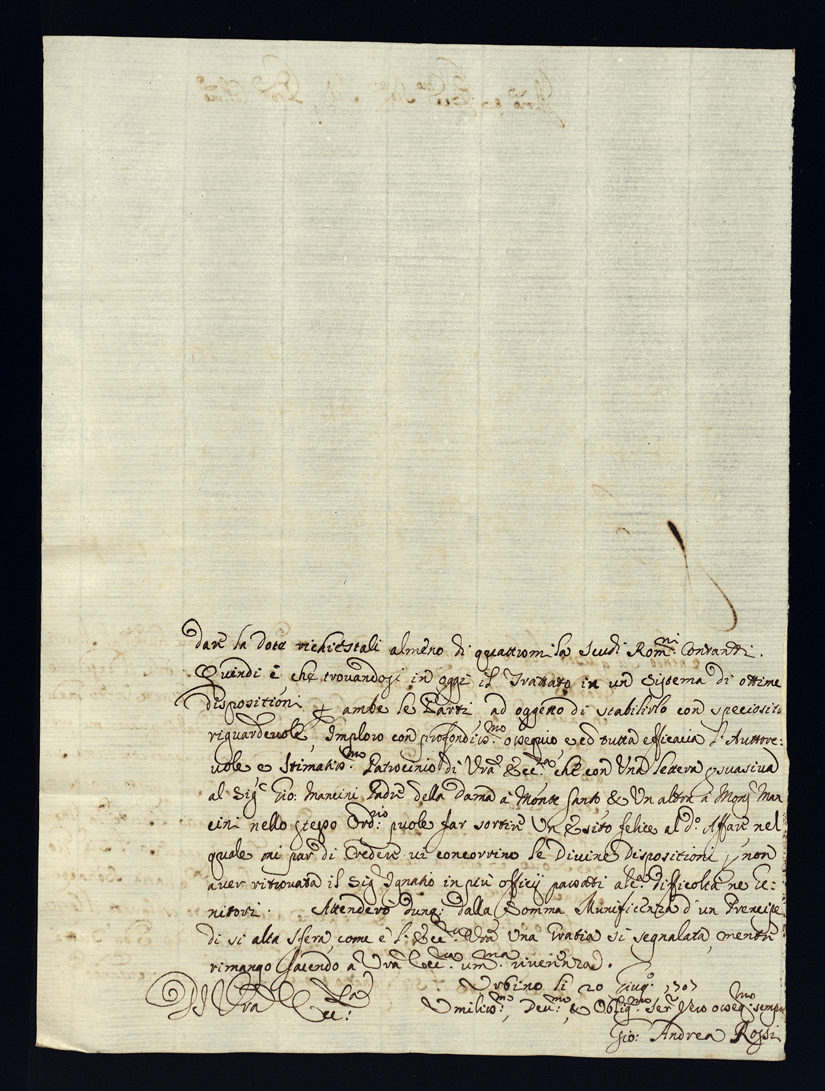 dare la dote richiestali almeno di quattromila scudi Rom.ni Contanti.
Quindi è che trovandosi in oggi il Trattato in un Sistema di ottime
dispositioni p ambe le Parti ad oggetto di stabilirlo con speciosità
riguardevole Imploro con profondiss.mo ossequio e ed tutta efficacia l'Auttore:
vole e Stimatiss.mo Patrocinio di Vra Ecc.za che con Una lettera psuasiva
al Sig.e Gio: Mancini Padre della Dama à Monte Santo & Un altra à Mons. Man
cini nello stesso Ord:rio puole far sortire Un Esito felice al d.o Affare nel
quale mi par di Credere vi concorrino le Divine Dispositioni p non
aver ritrovata il Sig. Ignatio in più officij passati alc.a difficoltà ne Ge:
nitori. Attenderò dunq. dalla Somma Munificenza d'un Prencipe
di si alta Sfera, come è l'Ecc.za Vra Una Gratia si segnalata, mentre
rimango facendo a Vra Ecc.za um.ma riverenza.
Di Vra Ecc.za
Urbino li 20 Giug.o 1707
Umiliss.mo, Dev.mo, & Oblig.mo Ser.e Vero osseq.mo sempre
Gio: Andrea Rossi